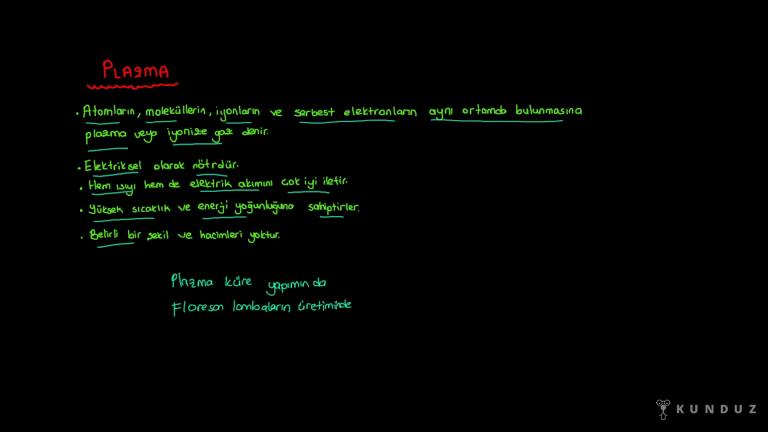 PLAZMA
• Atomların, moleküllerin, iyonların ve serbest elektronların aynı ortamda bulunmasına
plazma veya iyonize gaz denir.
• Elektriksel olarak nötrdür.
• Hem ısıyı hem de elektrik akımını çok iyi iletir.
• Yüksek sıcaklık ve enerji yoğunluğuna sahiptirler.
• Belirli bir şekil ve hacimleri yoktur.
Plazma küre yapımın da
Floresan lambaların üretiminde
KUNDUZ